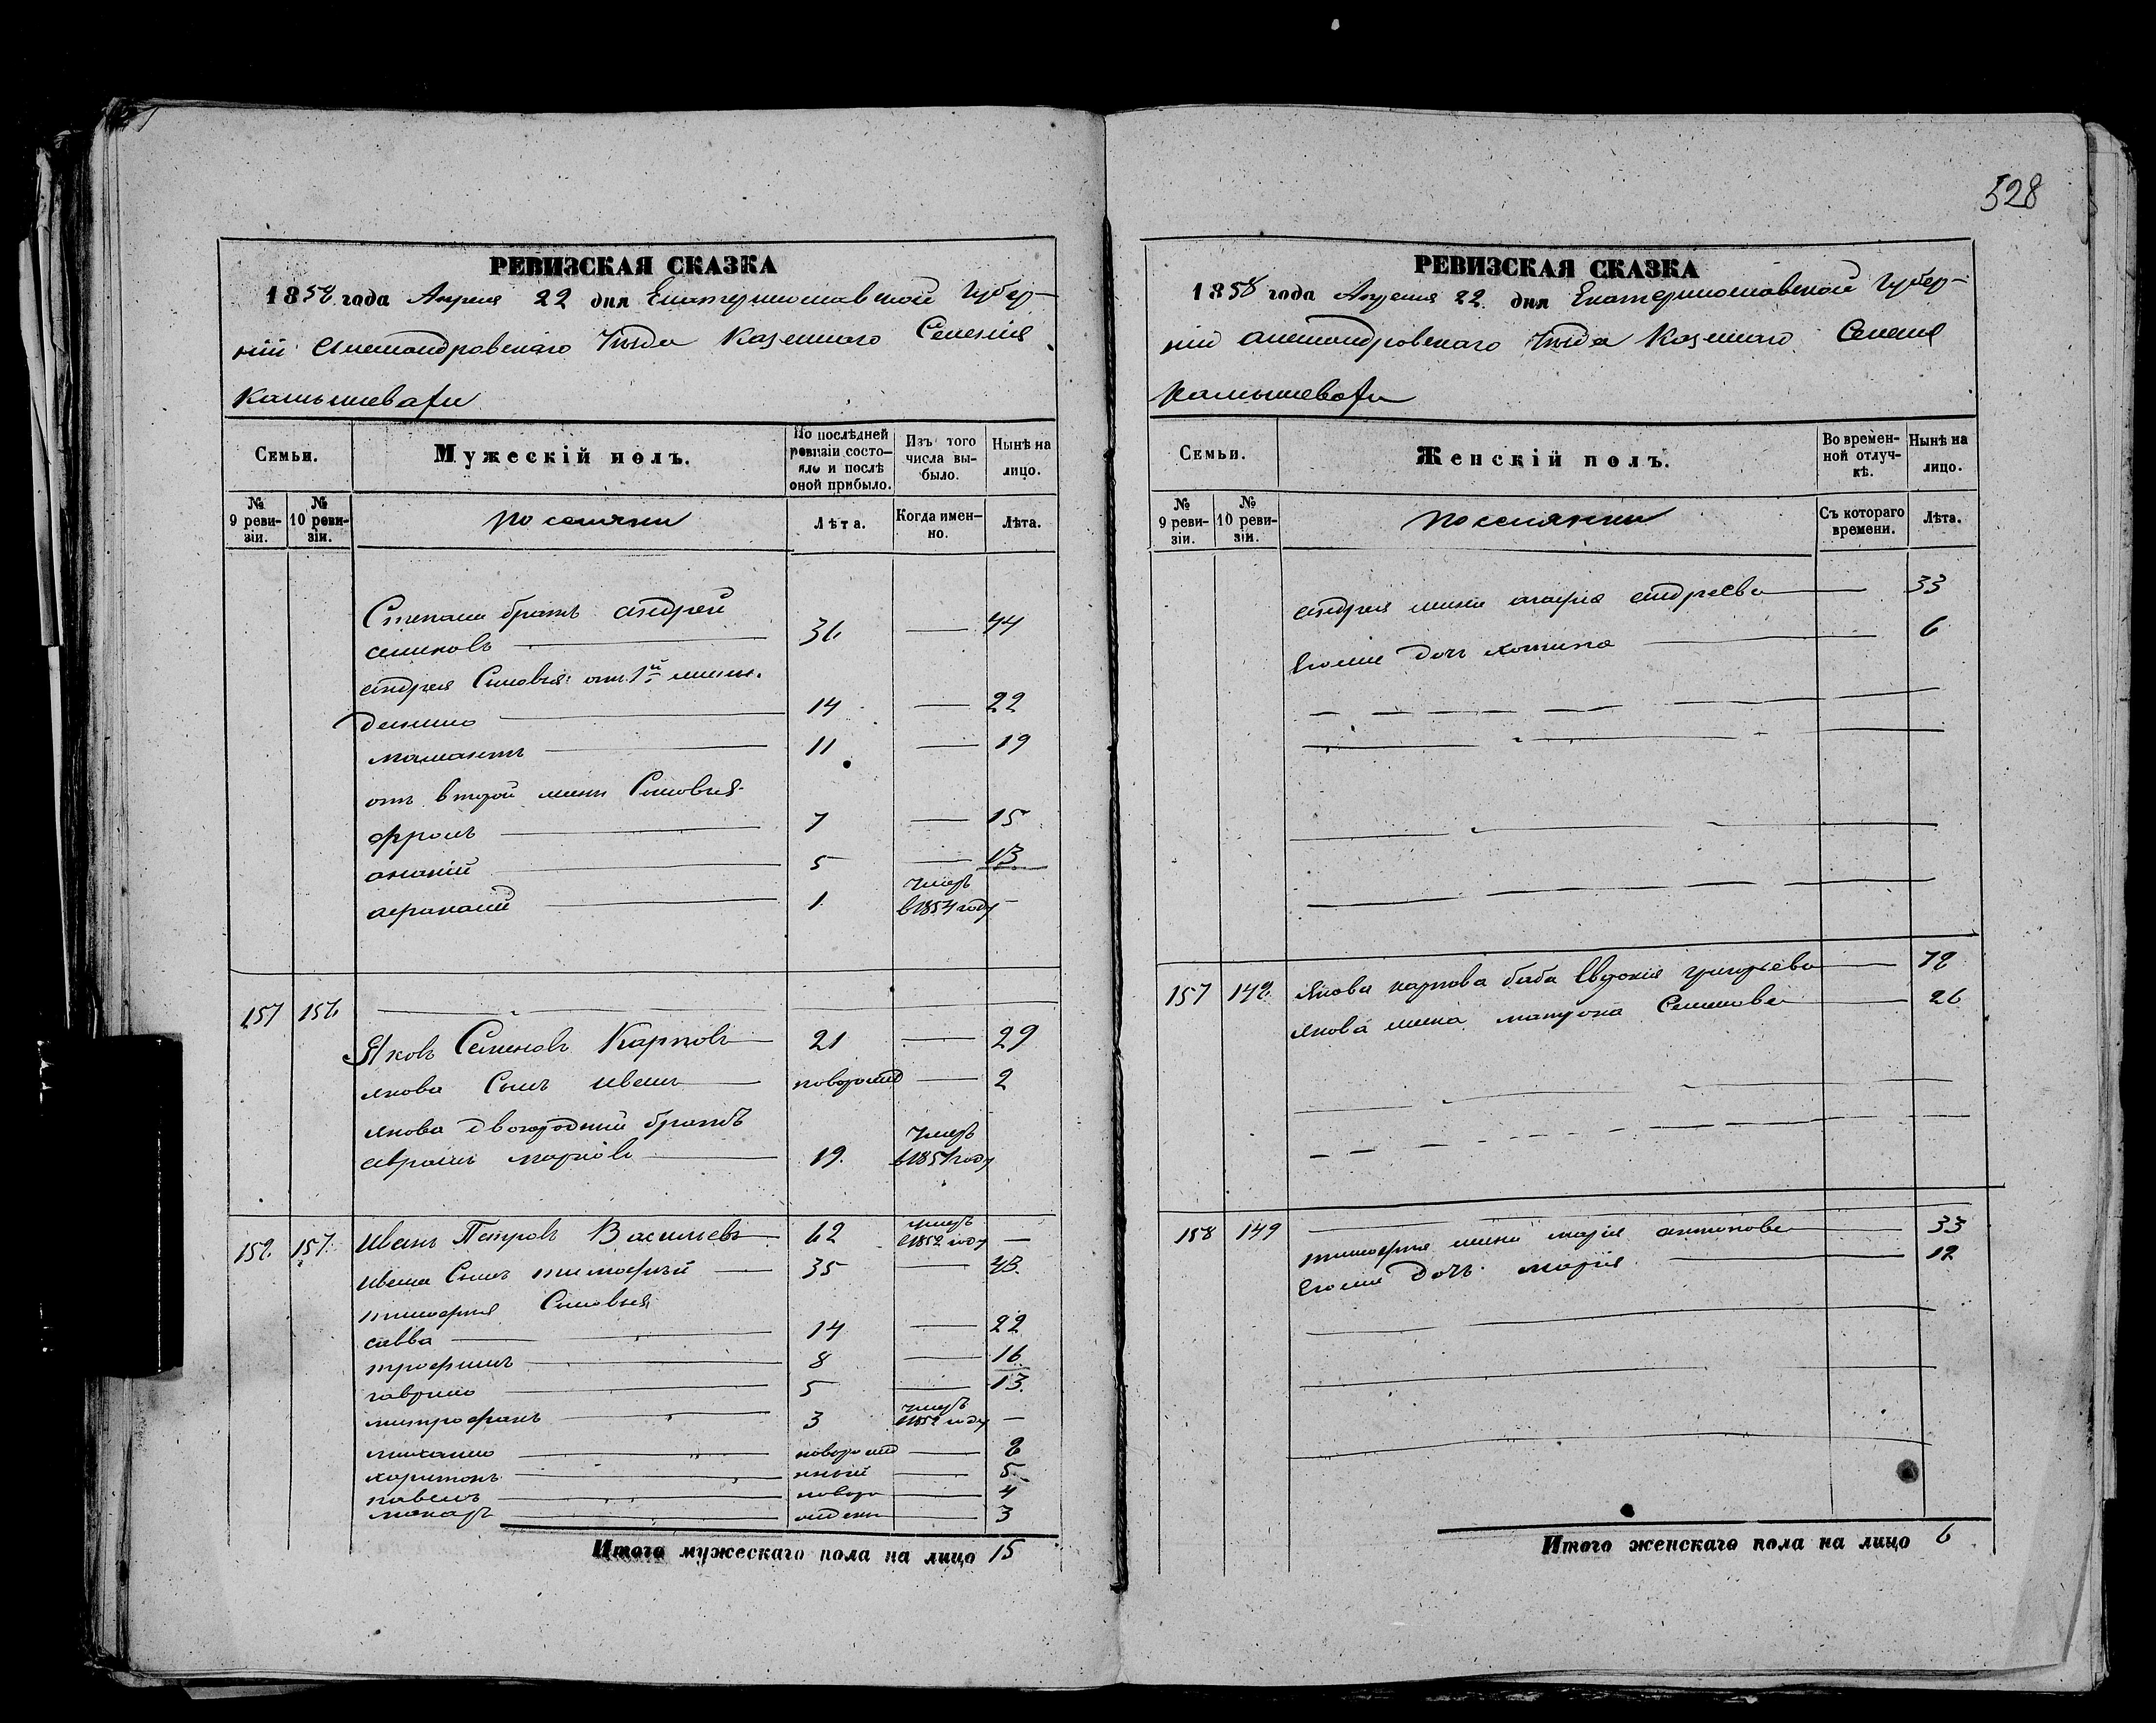 528
РЕВИЗСКАЯ СКАЗКА
1858 года Апреля 22 дня Екатеринославской Губер-
нiи Александровскаго Уезда Казеннаго Селенiя
Камышевахи
Семьи.
Мужескiй полъ.
По послѣдней ревизiи состояло и послѣ оной прибыло.
Изъ того числа выбыло.
Нынѣ на лицо.
№ 9 ревизiи.
№ 10 ревизiи.
поселяни
Лѣта.
Когда именно.
Лѣта.
Степана братъ андрей
семеновъ 36 — 44
андрея Сыновья отъ 1й жены.
данило 14 — 22
мамантъ 11 — 19
отъ второй жены Сыновья
фролъ 7 — 15
ананiй 5 — 13
афанасiй 1 умеръ в 1854 году
157 156
Яковъ Семеновъ Карповъ 21 — 29
якова Сынъ иванъ новорожд — 2
якова двоюродный братъ
абрамъ марковъ 19 умеръ в 1857 году
158 157 Иванъ Петровъ Васильевъ 62 умеръ в 1852 году —
ивана Сынъ тимофей 35 — 43
тимофея Сыновья
савва 14 — 22
трофимъ 8 — 16
гаврило 5 — 13
митрофанъ 3 умеръ в 1852 году —
михайло новорожд —
харитонъ нный — 5
павелъ новоро — 4
макаръ жденн — 3
Итого мужескаго пола на лицо 15
РЕВИЗСКАЯ СКАЗКА
1858 года Апреля 22 дня Екатеринославской Губер-
нiи александровскаго Уезда Казеннаго Селенiя
Камышевахи
Семьи.
Женскiй полъ.
Во временной отлучкѣ.
Нынѣ на лицо.
№ 9 ревизiи.
№ 10 ревизiи.
поселянки
Съ котораго времени.
Лѣта.
андрея жена агафiя андреева — 33
Егоже дочь 6
157 148 якова карпова баба Евдокiя григорьева — 78
якова жена матрона Семенова — 26
158 149
тимофея жена марiя антипова — 33
Егоже дочь марiя — 12
Итого женскаго пола на лицо 6